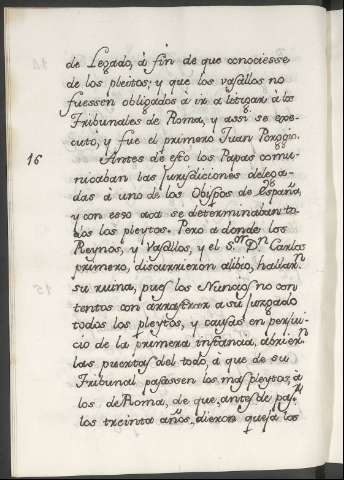 de Legado, à fin de que conociesse
de los pleitos; y que los vasallos no
fuessen obligados à ir a letigar à los
Tribunales de Roma, y assi se exe-
cutò, y fue el primero Juan Poggio.
16 Antes de esto los Papas comu-
nicaban las Jurisdiciones delega-
das à uno de los Obispos de España,
y con esso acà se determinaban to-
dos los pleytos. Pero a donde los
Reynos, y Vasallos, y el S.or D.n Carlos
primero, discurrieron alibio, hallar.n
su ruina, pues los Nuncios no con
tentos con arrastrar a su juzgado
todos los pleytos, y causas en perjui-
cio de la primera instancia, abrier.n
las puertas del todo, à que de su
Tribunal pasassen los mas pleytos, à
los de Roma, de que, antes de pas.r
los treinta años, dieron quesa los